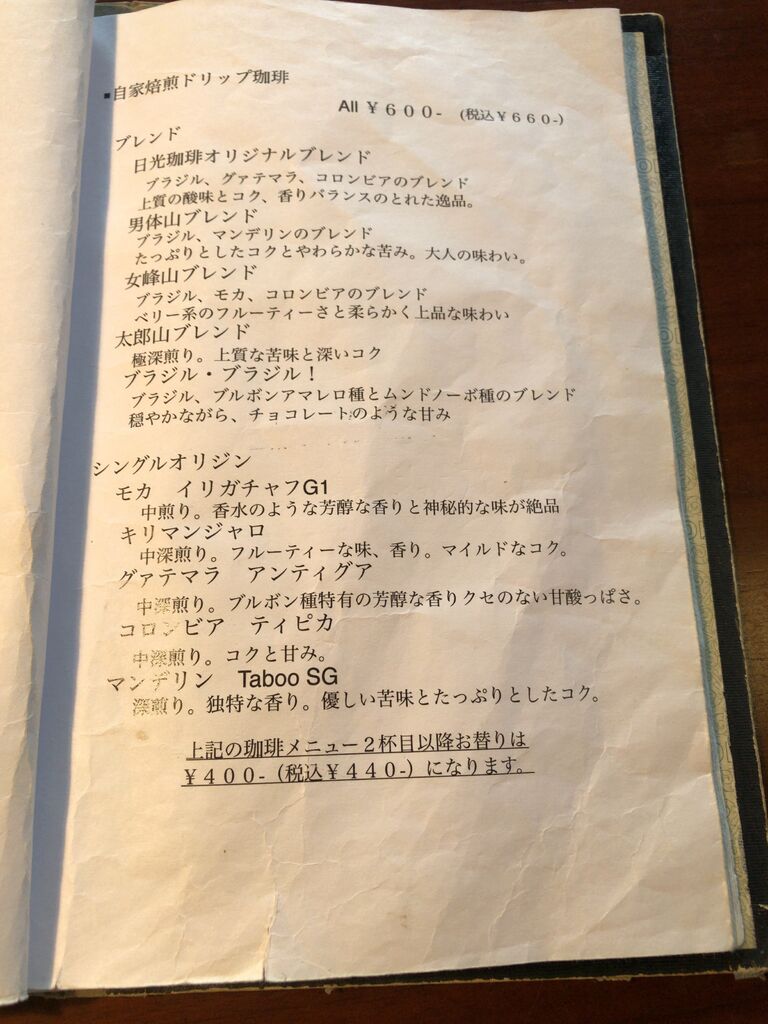 ▪自家焙煎ドリップ珈琲
All ￥６００- (税込￥６６０-)
ブレンド
日光珈琲オリジナルブレンド
ブラジル、グァテマラ、コロンビアのブレンド
上質の酸味とコク、香りバランスのとれた逸品。
男体山ブレンド
ブラジル、マンデリンのブレンド
たっぷりとしたコクとやわらかな苦み。大人の味わい。
女峰山ブレンド
ブラジル、モカ、コロンビアのブレンド
ベリー系のフルーティーさと柔らかく上品な味わい
太郎山ブレンド
極深煎り。上質な苦味と深いコク
ブラジル・ブラジル！
ブラジル、ブルボンアマレロ種とムンドノーボ種のブレンド
穏やかながら、チョコレートのような甘み
シングルオリジン
モカ　イリガチャフG1
中煎り。香水のような芳醇な香りと神秘的な味が絶品
キリマンジャロ
中深煎り。フルーティーな味、香り。マイルドなコク。
グァテマラ　アンティグア
中深煎り。ブルボン種特有の芳醇な香りクセのない甘酸っぱさ。
コロンビア　ティピカ
中深煎り。コクと甘み。
マンデリン　Taboo SG
深煎り。独特な香り。優しい苦味とたっぷりとしたコク。
上記の珈琲メニュー２杯目以降お替りは
￥４００-（税込￥４４０-）になります。